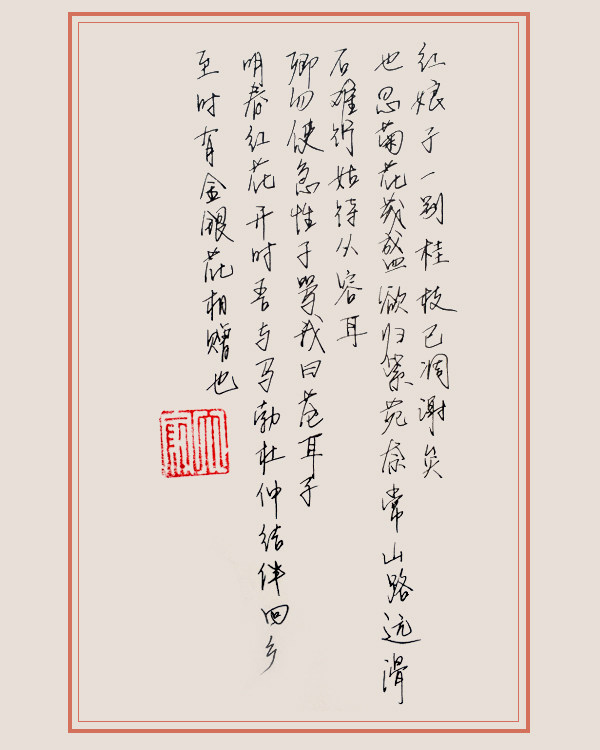 红娘子一别桂枝已凋谢矣
也思菊花茂盛欲归紫苑奈常山路远滑
石难行姑待从容耳
卿勿使急性子骂我曰苍耳子
明春红花开时吾与马勃杜仲结伴回乡
至时有金银花相赠也